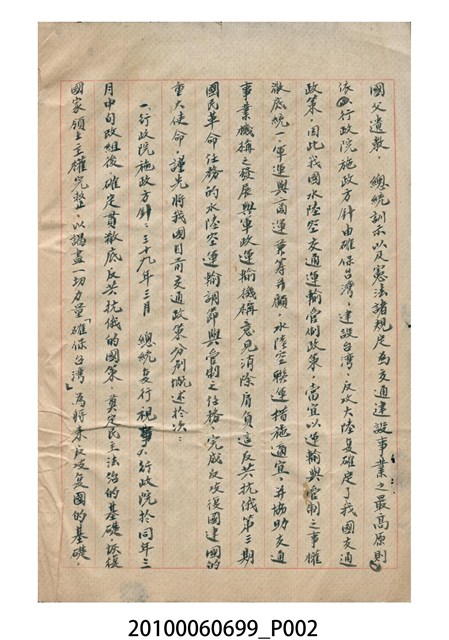 國父遺教，總統訓示以及憲法諸規定為交通建設事業之最高原則
依行政院施政方針由確保台灣，建設台灣，反攻大陸更確定了我國交通
政策，因此我國水陸空交通運輸管制政策，當宜以運輸與管制之事權
澈底統一軍運與商運兼籌並顧，水陸空聯運措施適宜，并協助交通
事業機構之發展與軍政運輸機構意見消除肩負這反共抗俄第三期
國民革命任務的水陸空運輸調節與管制之任務，完成反攻復國建國的
重大使命，謹先將我國目前交通政策分別概述於次：
一、行政院施政方針：三十九年三月 總統復行視事，行政院於同年三
月中旬改組後，確定貫澈底反共抗俄的國策，奠定民主法治的基礎，恢復
國家領土主權完整，以竭盡一切力量「確保台灣」為將來反攻復國的基礎，
20100060699_P002